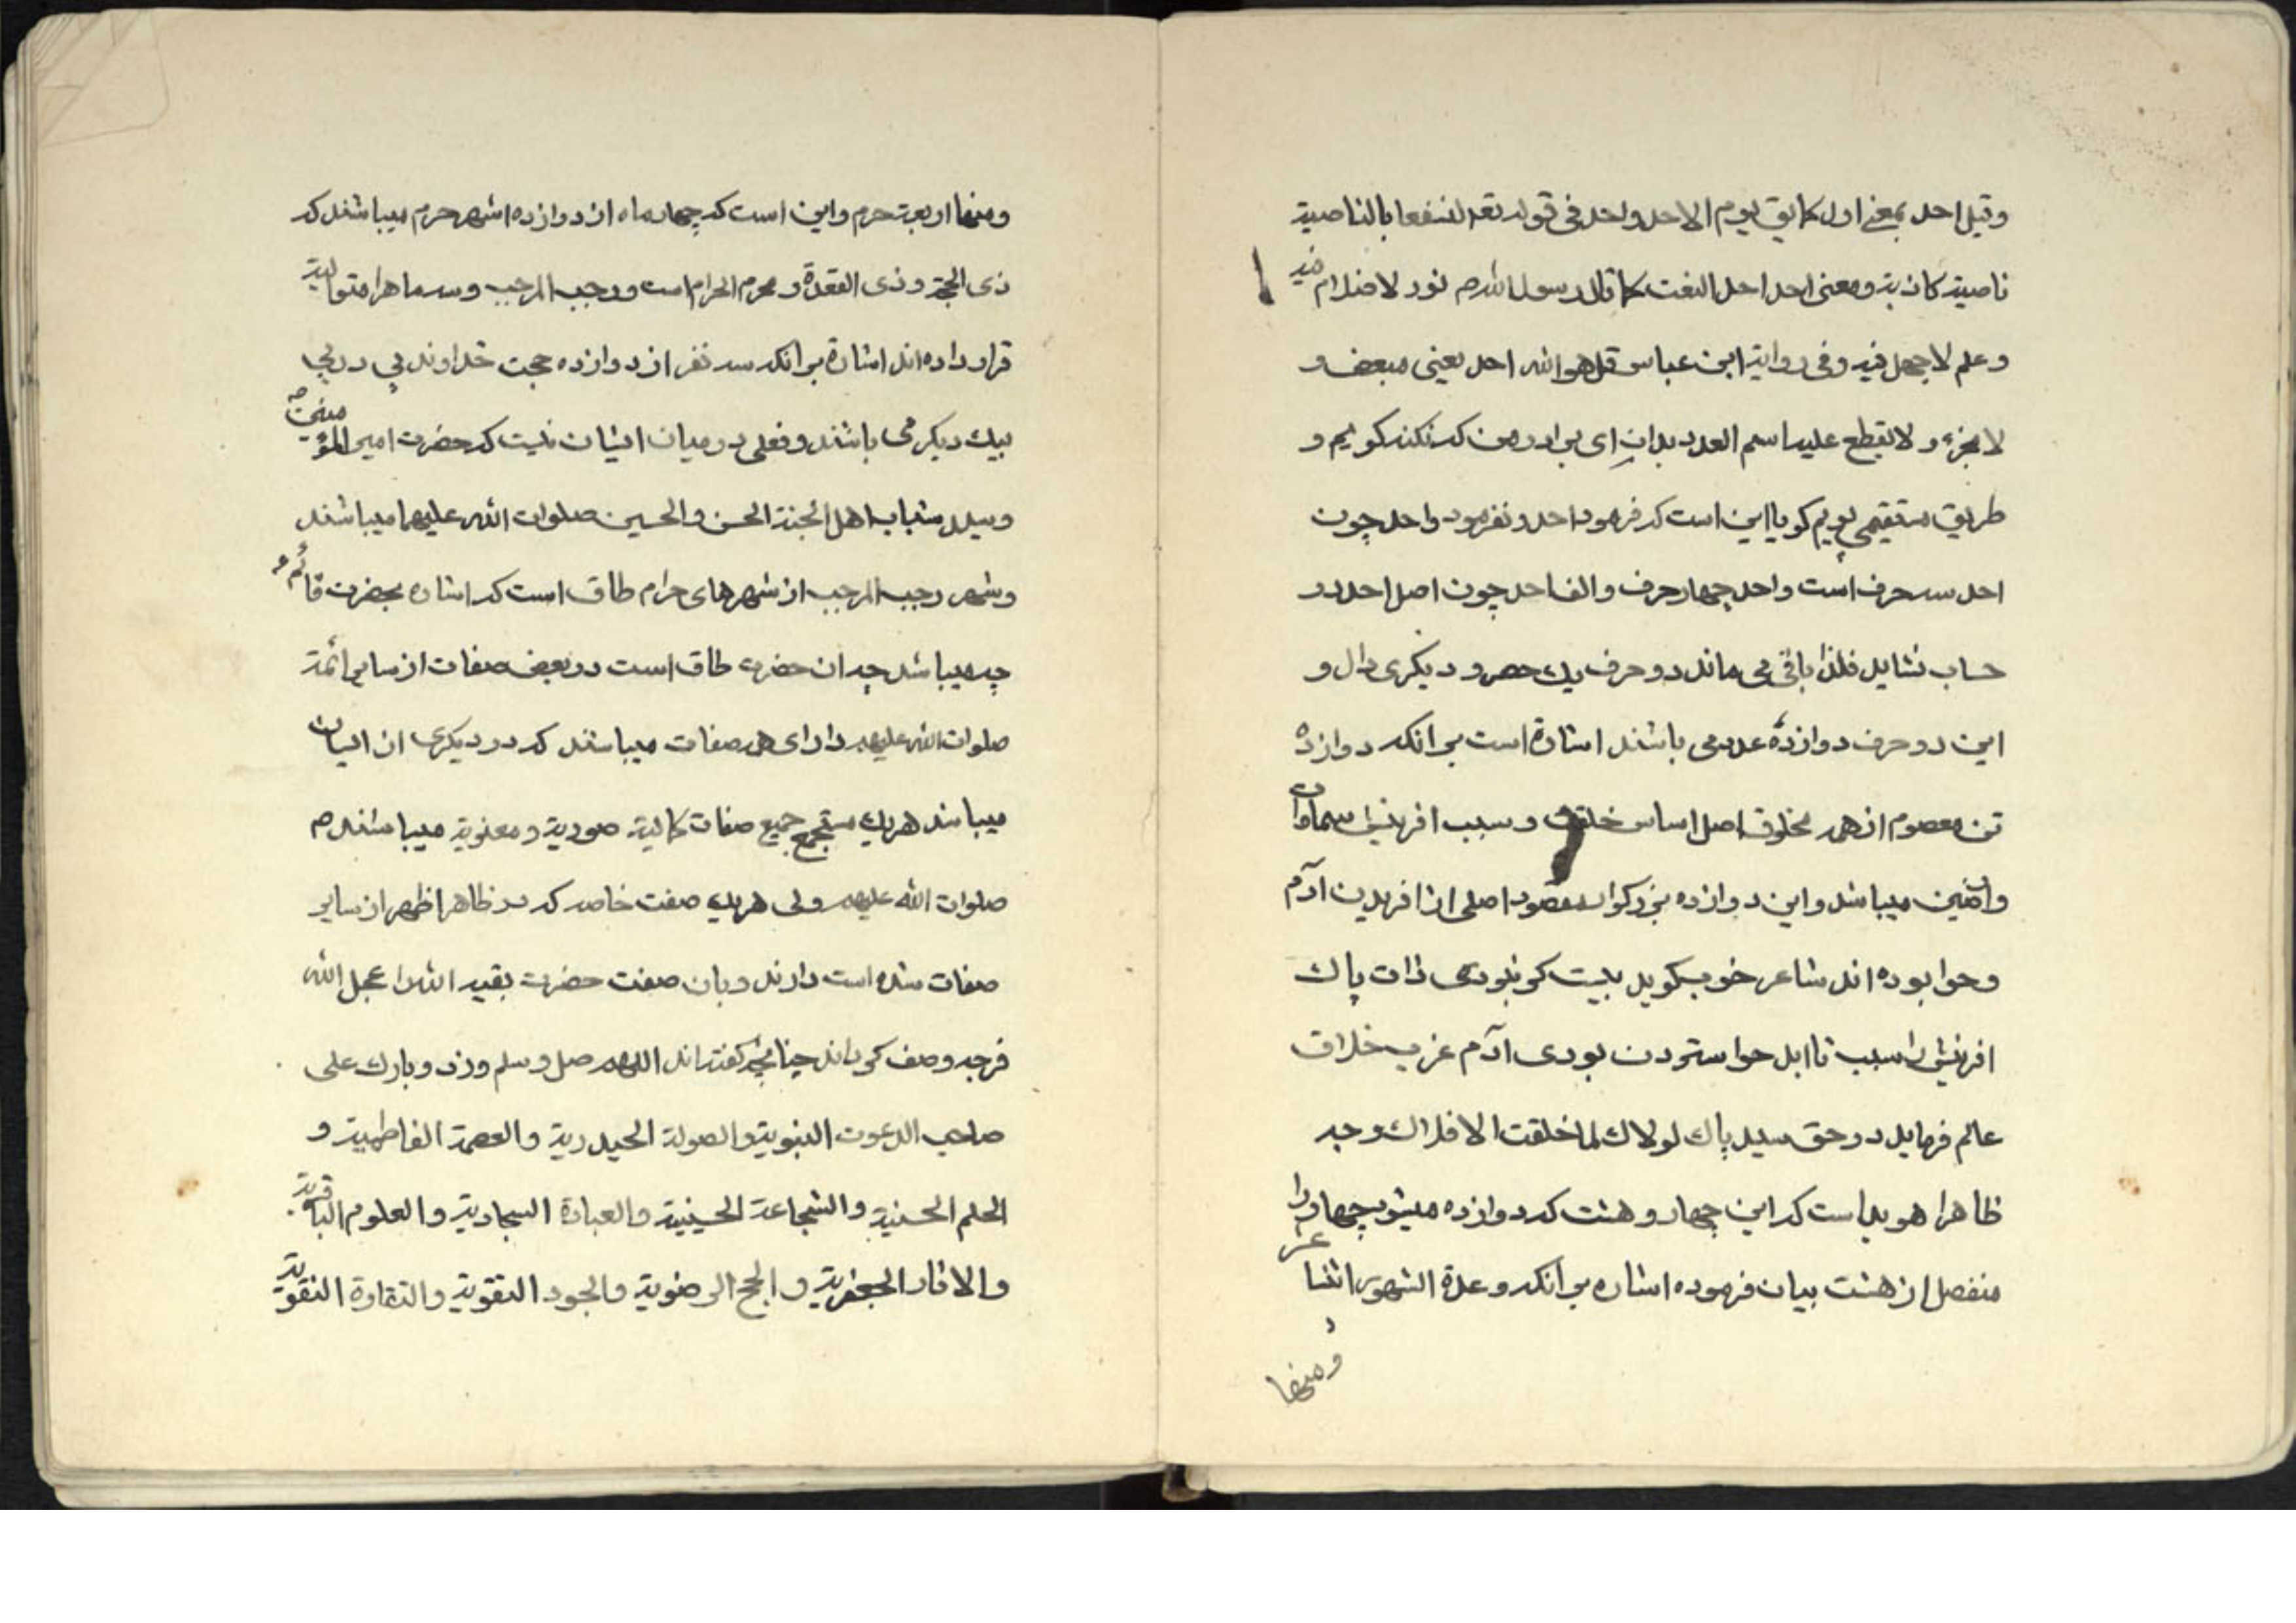 وقیل احد بمعنی اول کما یق یوم الاحد واحد فی قوله تعه لنسفعا بالناصیة
ناصیة کاذبة ومعنی احد احد النعت کما قال رسول الله ص نور لا ظلام فیه
وعلم لا جهل فیه وفی روایة ابن عباس قل هو الله احد یعنی مبعض و
لا مجزء و لا یقطع علیه اسم العدد بدان ای برادر من که نکنه کویم و
طریق مستقیمی پویم کویا این است که فرمود احد و نفرمود واحد چون
احد سه حرف است واحد چهار حرف والف احد چون اصل احد در
حساب نشاید فلذا باقی می ماند دو حرف یک حص و دیکری دال و
این دو حرف دوازده عدد می باشند اشارة است بر انکه دوازده
تن معصوم از همه مخلوق اصل اساس خلقت و سبب افرینش سماوات
وارضین میباشد واین دوازده بزرکوار مقصود اصلی از افریدن آدم
وحوا بوده اند شاعر خوب کوید بیت کر نبودی ذات پاک
افرینش را سبب تا ابد حوا سترون بودی آدم عزب خلاق
عالم فرماید در حق سید پاک لولاک لما خلقت الافلاک و چه
ظاهرا هویداست که این چهار و هشت که دوازده میشود چهار را
منفصل از هشت بیان فرموده اشاره بر انکه و عدة الشهور اثنا عشر
و منها
ومنها اربعة حرم واین است که چهار ماه از دوازده اشهر حرم میباشند که
ذی الحجة وذی القعدة و محرم الحرام است ورجب المرجب وسه ماه را متوالیة
قرار داده اند اشارة بر انکه سه نفر از دوازده حجت خداوند پی در پی
بیک دیکر می باشند وفصلی در میان ایشان نیست که حضرت امیر المؤمنین ص
وسید شباب اهل الجنة الحسن والحسین صلوات الله علیهما میباشند
وشهر رجب المرجب از شهرهای حرام طاق است که اشاره بحضرت قائم
چه میباشد چه ان حضرت طاق است در بعض صفات از سایر ائمة
صلوات الله علیهم دارای همه صفات میباشند که در دیکری از ایشان
میباشد هریک مستجمع جمیع صفات کمالیة صوریة و معنویة میباشند ص
صلوات الله علیهم ولی هریک صفت خاصه که در ظاهر اظهر از سایر
صفات شده است دارند وبان صفت حضرت بقیه الله را عجل الله
فرجه وصف کرده اند چنانچه کفته اند اللهم صل وسلم وزد وبارک علی
صاحب الدعوت النبویة والصولة الحیدریة والعصمة الفاطمیة و
الحلم الحسنیة والشجاعة الحسینیة والعبادة السجادیة والعلوم الباقریة
والاثار الجعفریة والحجج الرضویة والجود التقویة والنقاوة النقویة